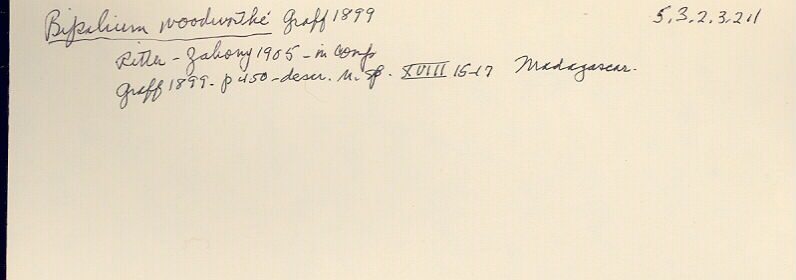 Bipalium woodworthi Graff 1899 5.3.2.3.2.1
Ritter-Zahony 1905 - in comp
Graff 1899. p 450 - descr. n. sp. XVIII 15-17 Madagascar.